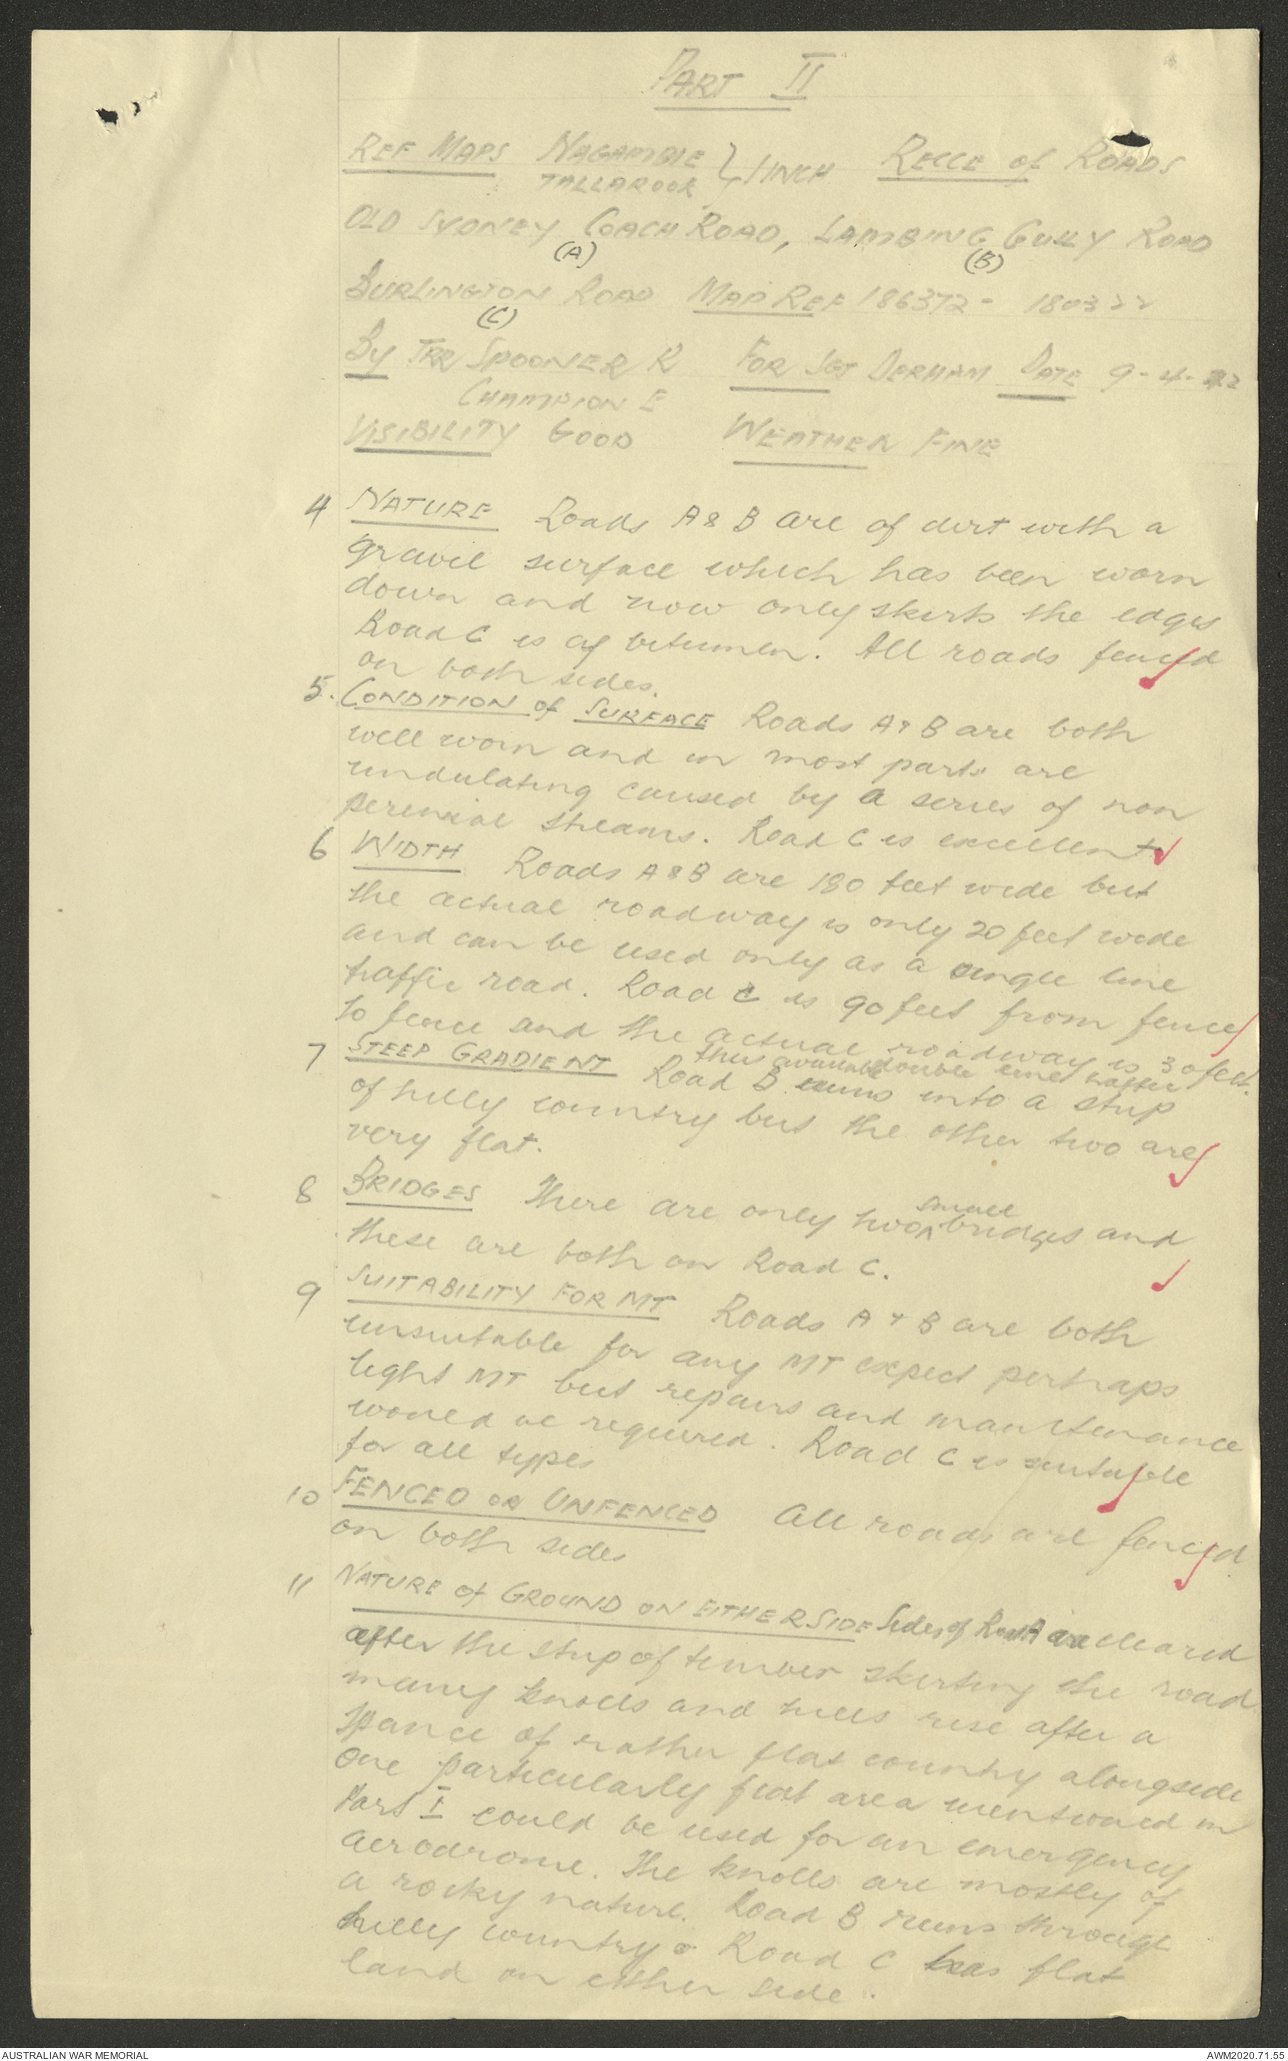 PART II
REF MAPS NAGAMBIE } 1 INCH RECCE of ROADS
TALLAROOK
OLD SYDNEY COACH ROAD, LAMBING GULLY ROAD
(A) (B)
BURLINGTON ROAD MAP REF 186372 - 180322
(C)
By TPR SPOONER R FOR SGT DERHAM DATE 9-4-
CHAMPION E
VISIBILITY GOOD WEATHER FINE
4 NATURE Roads A & B are of dirt with a
gravel surface which has been worn
down and now only skirts the edges
Road C is of bitumen. All roads fenced
on both sides.
5. CONDITION of SURFACE Roads A & B are both
well worn and in most parts are
undulating caused by a series of non
perenial streams. Road C is excellent
6 WIDTH Roads A & B are 180 feet wide but
the actual roadway is only 20 feet wide
and can be used only as a single line
traffic road. Road C is 90 feet from fence
to fence and the actual roadway is 30 feet.
thus available double line traffic
7 STEEP GRADIENT Road B runs into a strip
of hilly country but the other two are
very flat.
8 BRIDGES There are only two ^small bridges and
these are both on Road C.
9 SUITABILITY FOR MT Roads A & B are both
unsuitable for any MT expect perhaps
light MT but repairs and maintenance
would be required. Road C is suitable
for all types
10 FENCED OR UNFENCED All roads are fenced
on both sides
11 NATURE of GROUND ON EITHER SIDE Sides of Road A are cleared
after the strip of timber skirting the road
many knolls and hills rise after a
spance of rather flat country alongside
One particularly flat area mentioned in
Part I could be used for an emergency
aerodrome. The knolls are mostly of
a rocky nature. Road B runs through
hilly country & Road C has flat
land on either side.
AUSTRALIAN WAR MEMORIAL AWM2020.71.55